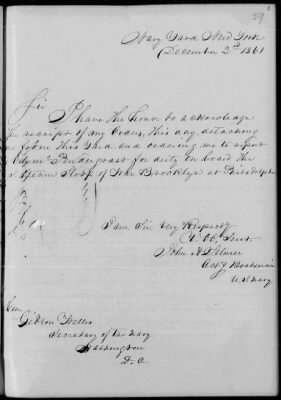 39
Navy Yard New York
December 2nd 1861
Sir
I have the honor to acknowledge
receipt of my Orders, this day, detaching
me from this Yard and ordering me to report
Pendergrast for duty on board the
Steam Sloop of War Brooklyn at Philadelphia
I am Sir Very Respectfy
Yr. Ob. Servt.
John A
Actg Boatswain
U.S. Navy
Hon.
Gideon Welles
Secretary of the Navy
Washington
D.C.